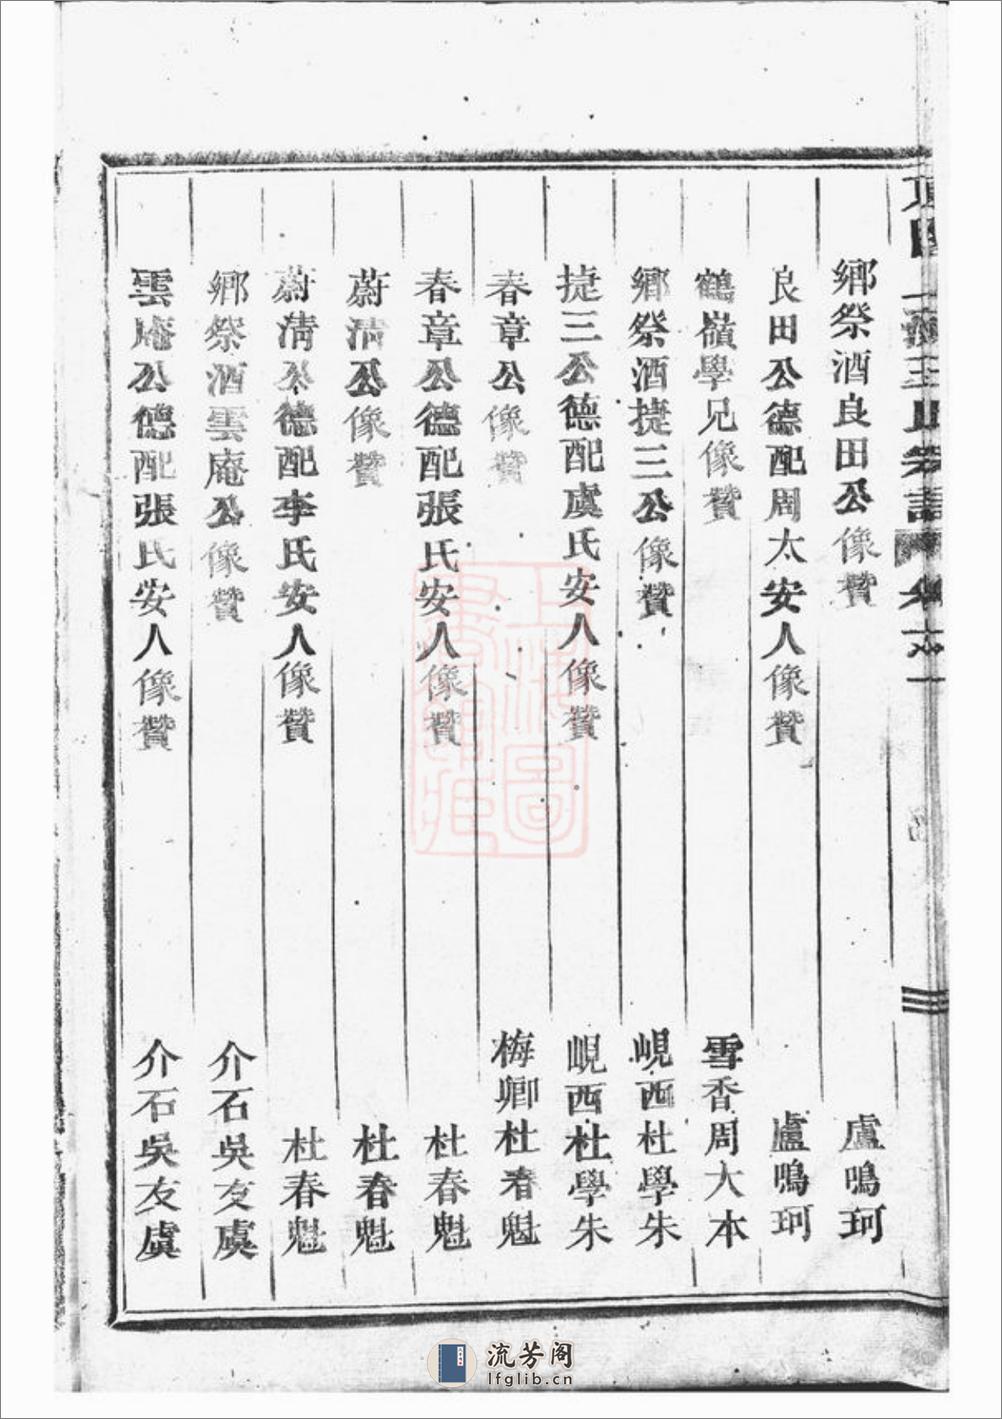 鄉祭酒良田公像贊 盧鳴珂
良田公德配周太安人像贊 盧鳴珂
鶴嶺學兄像贊 雪香周大本
鄉祭酒捷三公像贊 峴西杜學朱
捷三公德配虞氏安人像贊 峴西杜學朱
春章公像贊 梅卿杜春魁
春章公德配張氏安人像贊 杜春魁
蔚淸公像贊 杜春魁
蔚淸公德配李氏安人像贊 杜春魁
鄉祭酒雲庵公像贊 介石吳友虞
雲庵公德配張氏安人像贊 介石吳友虞
上海圖
書館藏
流芳阁
lfglib.cn